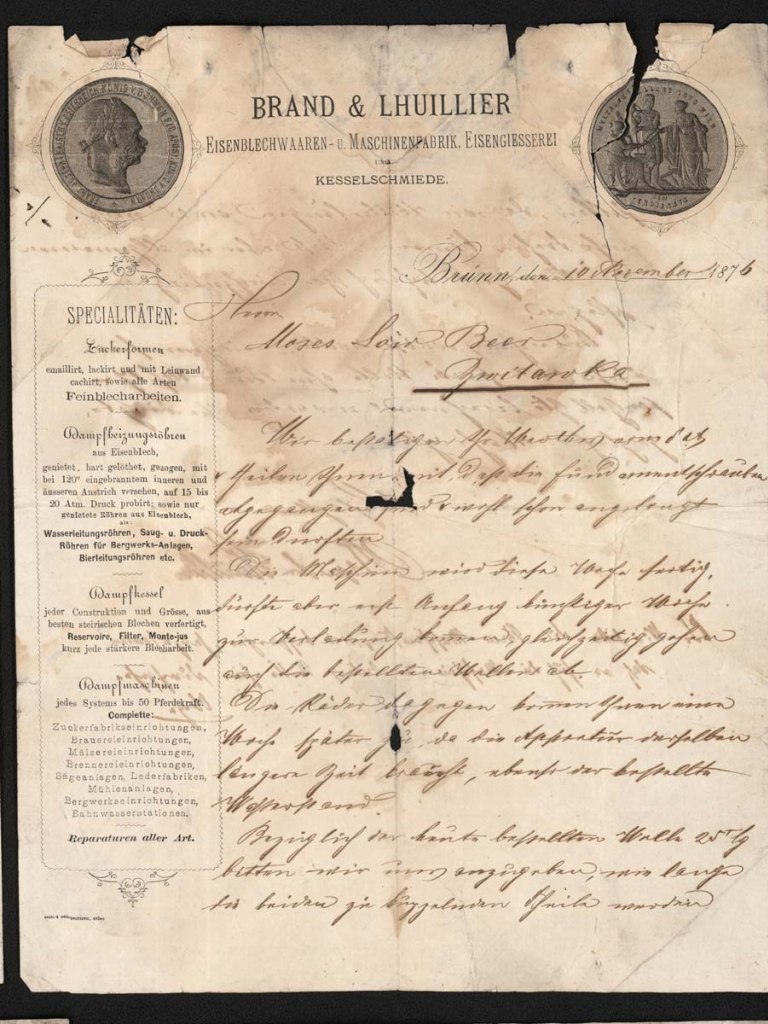 BRAND & LHUILLIER
EISENBLECHWAAREN- U. MASCHINENFABRIK, EISENGIESSEREI
UND
KESSELSCHMIEDE.
Brünn, den 10 November 1876
SPECIALITÄTEN:
Zuckerformen
emaillirt, lackirt und mit Leinwand
cachirt, sowie alle Arten
Feinblecharbeiten.
Dampfheizungsröhren
aus Eisenblech,
genietet, hart gelöthet, gezogen, mit
bei 120° eingebranntem inneren und
äusseren Anstrich versehen, auf 15 bis
20 Atm. Druck probirt; sowie nur
genietete Röhren aus Eisenblech,
als:
Wasserleitungsröhren, Saug- u. Druck-
Röhren für Bergwerks-Anlagen,
Bierleitungsröhren etc.
Dampfkessel
jeder Construction und Grösse, aus
besten steirischen Blechen verfertigt,
Reservoire, Filter, Monte-jus
kurz jede stärkere Blecharbeit.
Dampfmaschinen
jedes Systems bis 50 Pferdekraft.
Complette:
Zuckerfabrikseinrichtungen,
Brauereieinrichtungen,
Mälzereieinrichtungen,
Brennereieinrichtungen,
Sägeanlagen, Lederfabriken,
Mühlenanlagen,
Bergwerkseinrichtungen,
Bahnwasserstationen.
Reparaturen aller Art.
Herrn
Moses Löw Beer
Zwitawka
Wir bestätigen Ihr Werthes
theilen Ihnen mit, daß die Fundamentschrauben
abgegangen sind & wohl schon angelangt
sein dürften
Die Maschine wird diese Woche fertig,
dürfte aber erst Anfang künftiger Woche
zur Verladung kommen, gleichzeitig gehen
auch die bestellten Wellen ab.
Die Räder dagegen kommen Ihnen eine
Woche später zu, da die Apparatur derselben
längere Zeit braucht, ebenso der bestellte
Wasserstand.
Bezüglich der heute bestellten Welle
bitten wir uns anzugeben, wie lange
die beiden zu kuppelnden Theile werden